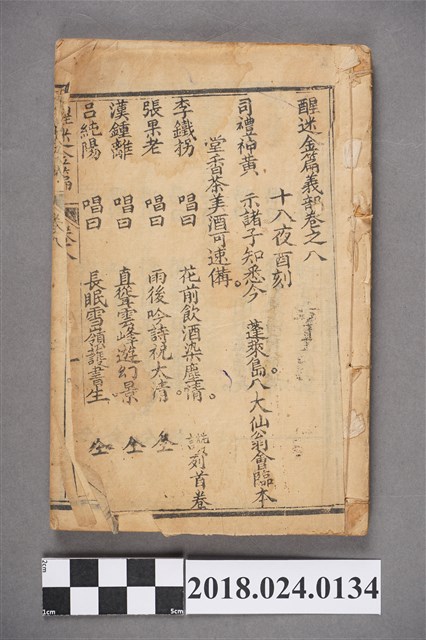 醒迷金篇義部卷之八
十八夜酉刻
司禮神黃 示諸子知悉今 蓬萊島八大仙翁會臨本
堂香茶美酒可速備。
李鐵拐 唱曰 花前飲酒染塵情。 列首卷
張果老 唱曰 雨後吟詩祝太清 仝
漢鍾離 唱曰 真聳雲峰遊幻景 仝
呂純陽 唱曰 長眠雪嶺護書生 仝
2cm
1cm
5cm
2018.024.0134